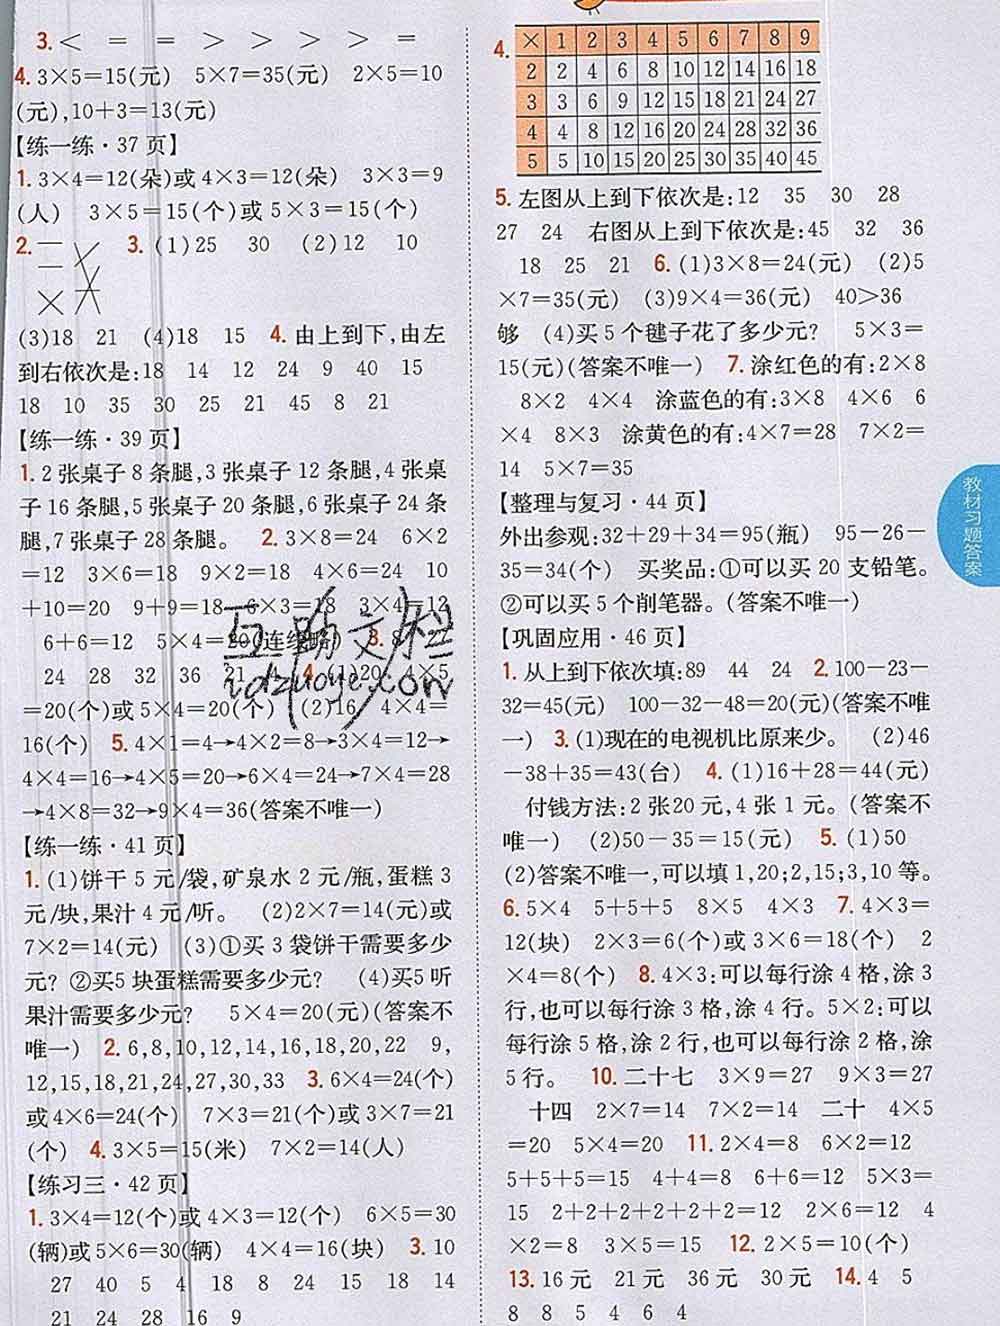 3. < = = > > > > =
4. 3×5=15(元) 5×7=35(元) 2×5=10
(元),10+3=13(元)
【练一练·37 页】
1. 3×4=12(朵)或 4×3=12(朵) 3×3=9
(人) 3×5=15(个)或 5×3=15(个)
2. 3. (1)25 30 (2)12 10
(3)18 21 (4)18 15 4. 由上到下,由左
到右依次是:18 14 12 24 9 40 15
18 10 35 30 25 21 45 8 21
【练一练·39 页】
1. 2 张桌子 8 条腿,3 张桌子 12 条腿,4 张桌
子 16 条腿,5 张桌子 20 条腿,6 张桌子 24 条
腿,7 张桌子 28 条腿。 2. 3×8=24 6×2
=12 3×6=18 9×2=18 4×6=24 10
+10=20 9+9=18 6×3=18 3×4=12
6+6=12 5×4=20(连线略) 3. 27
24 28 32 36 21 4. (1)20 4×5
=20(个)或 5×4=20(个) (2)16 4×4=
16(个) 5. 4×1=4→4×2=8→3×4=12→
4×4=16→4×5=20→6×4=24→7×4=28
→4×8=32→9×4=36(答案不唯一)
【练一练·41 页】
1. (1)饼干 5 元/袋,矿泉水 2 元/瓶,蛋糕 3
元/块,果汁 4 元/听。 (2)2×7=14(元)或
7×2=14(元) (3)①买 3 袋饼干需要多少
元? ②买5 块蛋糕需要多少元? (4)买5 听
果汁需要多少元? 5×4=20(元)(答案不
唯一) 2. 6,8,10,12,14,16,18,20,22 9,
12,15,18,21,24,27,30,33 3. 6×4=24(个)
或 4×6=24(个) 7×3=21(个)或 3×7=21
(个) 4. 3×5=15(米) 7×2=14(人)
【练习三·42 页】
1. 3×4=12(个)或 4×3=12(个) 6×5=30
(辆)或 5×6=30(辆) 4×4=16(块) 3. 10
27 40 5 4 18 8 24 15 18 14
21 24 28 16 9
4.
× 1 2 3 4 5 6 7 8 9
2 2 4 6 8 10 12 14 16 18
3 3 6 9 12 15 18 21 24 27
4 4 8 12 16 20 24 28 32 36
5 5 10 15 20 25 30 35 40 45
5. 左图从上到下依次是:12 35 30 28
27 24 右图从上到下依次是:45 32 36
18 25 21 6. (1)3×8=24(元) (2)5
×7=35(元) (3)9×4=36(元) 40>36
够 (4)买 5 个毽子花了多少元? 5×3=
15(元)(答案不唯一) 7. 涂红色的有:2×8
8×2 4×4 涂蓝色的有:3×8 4×6 6
×4 8×3 涂黄色的有:4×7=28 7×2=
14 5×7=35
【整理与复习·44 页】
外出参观:32+29+34=95(瓶) 95-26-
35=34(个) 买奖品:①可以买 20 支铅笔。
②可以买 5 个削笔器。(答案不唯一)
【巩固应用·46 页】
1. 从上到下依次填:89 44 24 2. 100-23-
32=45(元) 100-32-48=20(元)(答案不唯
一) 3. (1)现在的电视机比原来少。 (2)46
-38+35=43(台) 4. (1)16+28=44(元)
付钱方法:2 张20 元,4 张 1 元。(答案不
唯一) (2)50-35=15(元) 5. (1)50
(2)答案不唯一,可以填 1,20;2,15;3,10 等。
6. 5×4 5+5+5 8×5 4×3 7. 4×3=
12(块) 2×3=6(个)或 3×6=18(个) 2
×4=8(个) 8. 4×3:可以每行涂 4 格,涂 3
行,也可以每行涂 3 格,涂 4 行。5×2:可以
每行涂 5 格,涂 2 行,也可以每行涂 2 格,涂
5 行。 10. 二十七 3×9=27 9×3=27
十四 2×7=14 7×2=14 二十 4×5
=20 5×4=20 11. 2×4=8 6×2=12
5+5+5=15 4+4=8 6+6=12 5×3=
15 2+2+2+2+2+2=12 2×6=12 4
×2=8 3×5=15 12. 2×5=10(个)
13. 16 元 21 元 36 元 30 元 14. 4 5
8 8 5 4 6 4
教材习题答案
互助文栏
idzuoye.com